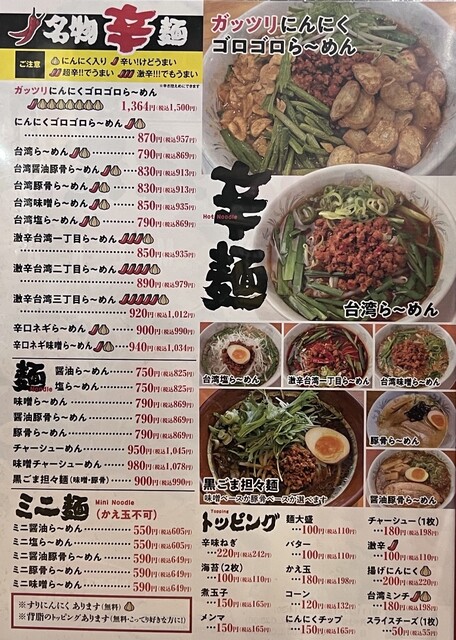 名物 辛 麺
ご注意
にんにく入り 辛い!けどうまい
超辛!!でうまい 激辛!!!でもうまい
ガッツリにんにくゴロゴロら〜めん
1,364円(税込1,500円)
にんにくゴロゴロら〜めん
870円(税込957円)
台湾ら〜めん 790円(税込869円)
台湾醤油豚骨ら〜めん 830円(税込913円)
台湾豚骨ら〜めん 830円(税込913円)
台湾味噌ら〜めん 850円(税込935円)
台湾塩ら〜めん 790円(税込869円)
激辛台湾一丁目ら〜めん
850円(税込935円)
激辛台湾二丁目ら〜めん
890円(税込979円)
激辛台湾三丁目ら〜めん
920円(税込1,012円)
辛口ネギら〜めん 900円(税込990円)
辛口ネギ味噌ら〜めん 940円(税込1,034円)
麺
Noodle
醤油ら〜めん 750円(税込825円)
塩ら〜めん 750円(税込825円)
味噌ら〜めん 790円(税込869円)
醤油豚骨ら〜めん 790円(税込869円)
豚骨ら〜めん 790円(税込869円)
チャーシューめん 950円(税込1,045円)
味噌チャーシューめん 980円(税込1,078円)
黒ごま担々麺(味噌・豚骨) 900円(税込990円)
ミニ麺 Mini Noodle
(かえ玉不可)
ミニ醤油ら〜めん 550円(税込605円)
ミニ塩ら〜めん 550円(税込605円)
ミニ醤油豚骨ら〜めん 590円(税込649円)
ミニ豚骨ら〜めん 590円(税込649円)
ミニ味噌ら〜めん 590円(税込649円)
※すりにんにく あります(無料)
※背脂のトッピングあります(無料・こってり好きな方に!)
ガッツリにんにく
ゴロゴロら〜めん
辛麺
Hot Noodle
台湾ら〜めん
台湾塩ら〜めん
激辛台湾一丁目ら〜めん
台湾味噌ら〜めん
豚骨ら〜めん
黒ごま担々麺
味噌ベースか豚骨ベースか選べます
醤油豚骨ら〜めん
Topping
トッピング
辛味ねぎ
220円(税込242円)
海苔(2枚)
100円(税込110円)
煮玉子
150円(税込165円)
メンマ
150円(税込165円)
麺大盛
100円(税込110円)
バター
100円(税込110円)
かえ玉
180円(税込198円)
コーン
120円(税込132円)
にんにくチップ
150円(税込165円)
チャーシュー(1枚)
180円(税込198円)
激辛
100円(税込110円)
揚げにんにく
200円(税込220円)
台湾ミンチ
180円(税込198円)
スライスチーズ(1枚)
50円(税込55円)